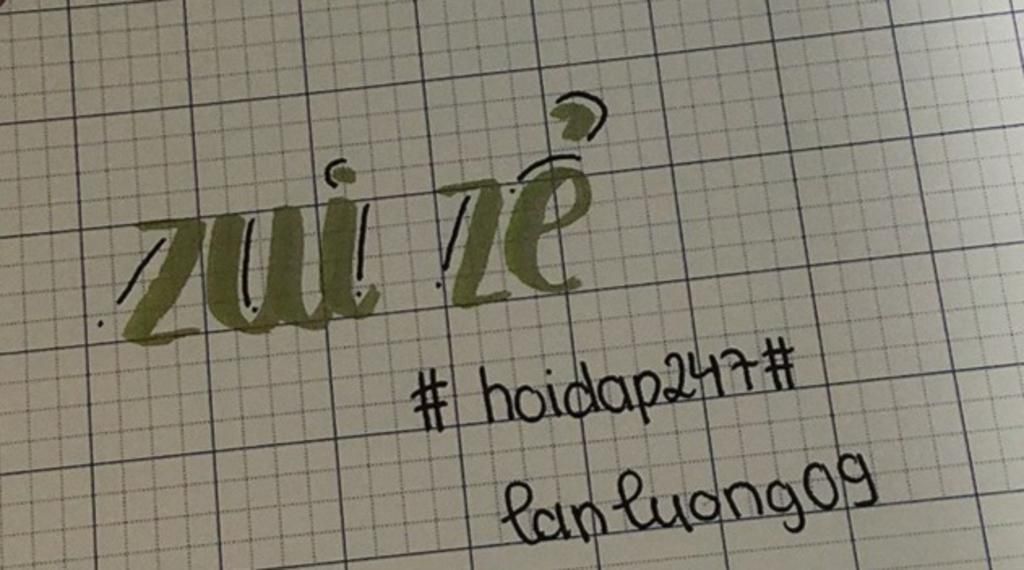 zui zẻ
# hoidap247#
lanluong09